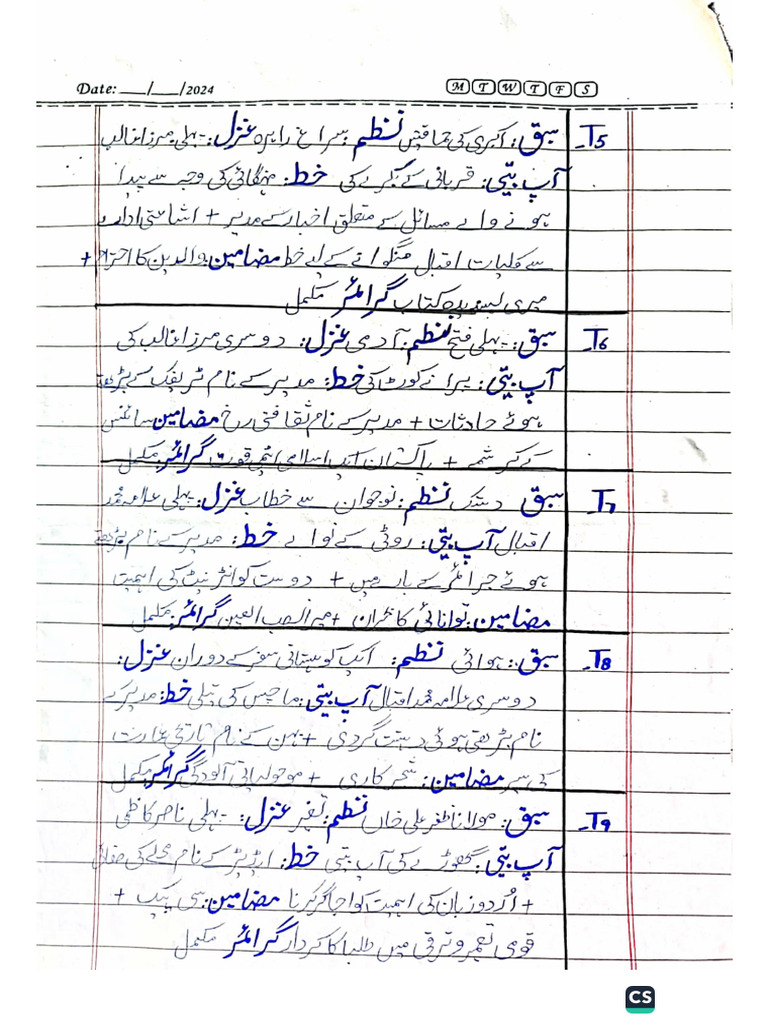 Date: ___/___/2024
M T W T F S
T5_ سبق: اکبری کی حماقتیں نظم: سراغ راہرو غزل:- پہلی مرزا غالب
آپ بیتی: قربانی کے بکرے کی خط: مہنگائی کی وجہ سے پیدا
ہونے والے مسائل سے متعلق اخبار کے مدیر + اشاعتی ادارے
سے کلیات اقبال منگوانے کے لیے خط مضامین: والدین کا احترام +
میری پسندیدہ کتاب گرائمر مکمل
T6_ سبق:- پہلی فتح نظم: آدمی غزل: دوسری مرزا غالب کی
آپ بیتی: پرانے کوٹ کی خط: مدیر کے نام ٹریفک کے بڑھتے
ہوئے حادثات + مدیر کے نام ثقافتی رخ مضامین سائنس
کے کرشمے + پاکستان ایک اسلامی ایٹمی قوت گرائمر: مکمل
T7_ سبق دستک نظم: نوجوان سے خطاب غزل: پہلی علامہ محمد
اقبال آپ بیتی: روٹی کے نوالے خط: مدیر کے نام بڑھتے
ہوئے جرائم کے بارے میں + دوست کو انٹرنیٹ کی اہمیت
مضامین: توانائی کا بحران + میرا نصب العین گرائمر: مکمل
T8_ سبق: ہوائی نظم: ایک کوہستانی سفر کے دوران غزل:
دوسری علامہ محمد اقبال آپ بیتی: ماچس کی تیلی خط: مدیر کے
نام بڑھتی ہوئی دہشت گردی + بہن کے نام تاریخی عمارت
کی سیر مضامین: شجر کاری + ماحولیاتی آلودگی گرائمر: مکمل
T9_ سبق: مولانا ظفر علی خاں نظم: لغیر غزل:- پہلی ناصر کاظمی
آپ بیتی: گھوڑے کی آپ بیتی خط: ایڈیٹر کے نام محلے کی صفائی
+ اُردو زبان کی اہمیت کو اجاگر کرنا مضامین: سی پیک +
قومی تعمیر و ترقی میں طلبا کا کردار گرائمر مکمل
CS